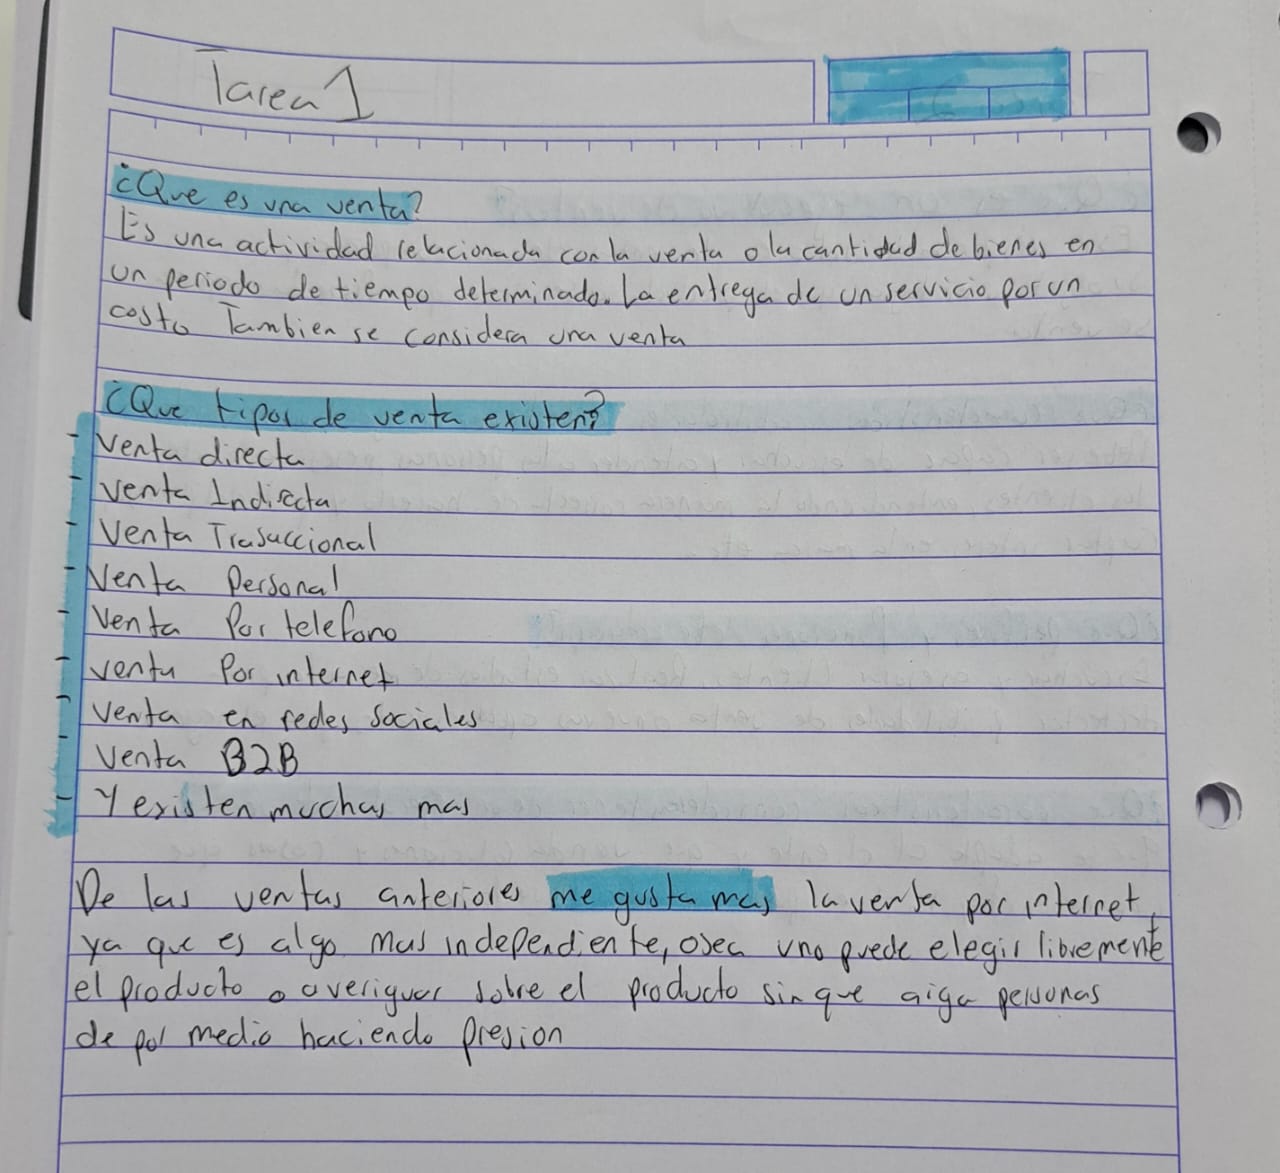 Tarea 1
¿Que es una venta?
Es una actividad relacionada con la venta o la cantidad de bienes en
un periodo de tiempo determinado. La entrega de un servicio por un
costo Tambien se considera una venta
¿Que tipos de venta existen?
- Venta directa
- Venta Indirecta
- Venta Trasaccional
- Venta Personal
- Venta Por telefono
- venta Por internet
- Venta en redes sociales
- Venta B2B
- Y existen muchas mas
De las ventas anteriores me gusta mas la venta por internet,
ya que es algo mas independiente, osea uno puede elegir libremente
el producto o averiguar sobre el producto sin que aiga personas
de por medio haciendo presion